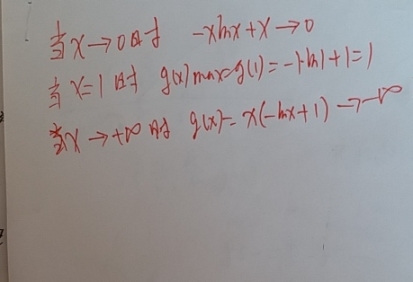 当x→0时 -xlnx+x→0
当x=1时 g(x)max=g(1)=-1·ln1+1=1
当x→+∞时 g(x)=x(-lnx+1)→-∞